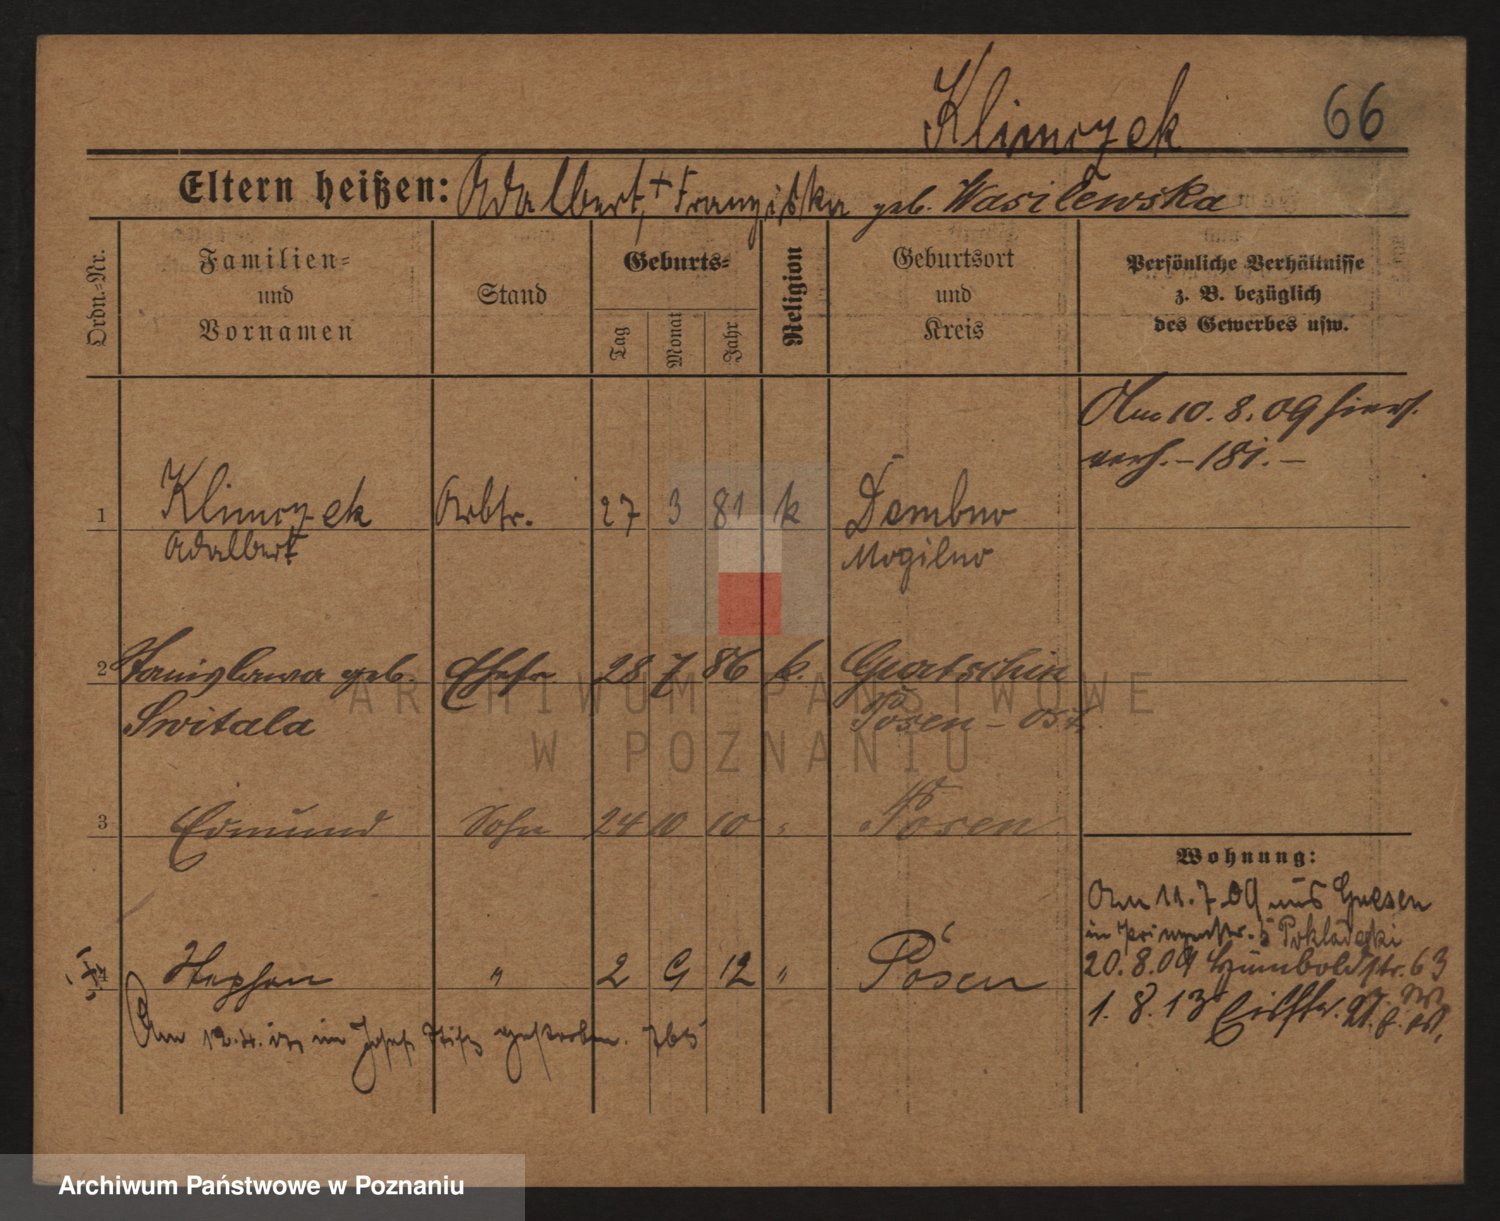 Klimczek 66
Eltern heißen: Adalbert, + Franziska geb. Wasilewska
Ordn.-Nr.
Familien-
und
Vornamen
Stand
Geburts-
Tag
Monat
Jahr
Religion
Geburtsort
und
Kreis
Persönliche Verhältnisse
z. B. bezüglich
des Gewerbes usw.
Am 10. 8. 09 hiers.
verh. – 181. –
1 Klimczek Arbtr. 27 3 81 k Dembno
Adalbert Mogilno
2 Stanislawa geb. Ehefr. 28 7 86 k. Gurtschin
Switala Posen – Ost
3 Edmund Sohn 24 10 10 " Posen
Wohnung:
Am 11. 7. 09 aus Gnesen
in 5 Pokladecki
20. 8. 09 Humboldstr. 63
1. 8. 13
4 Stephan " 2 9 12 " Posen
Am 12. 4. im Josef Stift gestorben. 765
ARCHIWUM PAŃSTWOWE
W POZNANIU
Archiwum Państwowe w Poznaniu